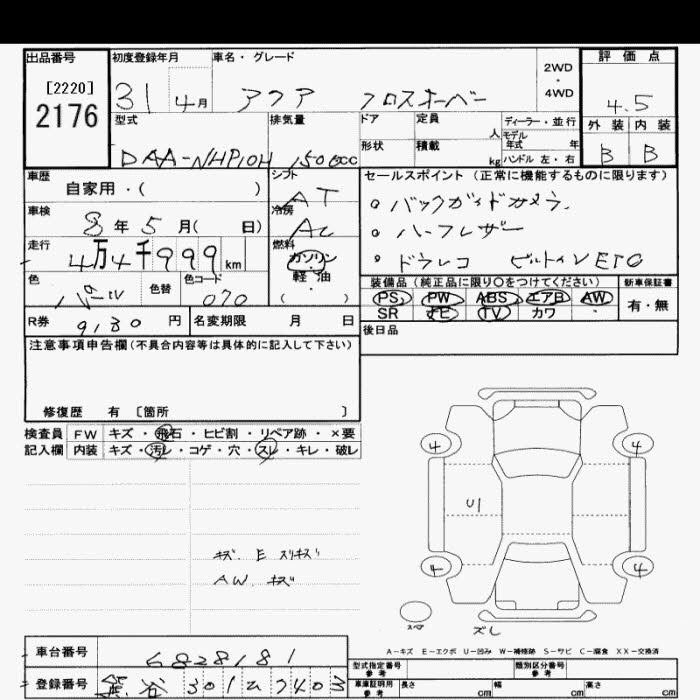 出品番号
[2220]
2176
初度登録年月
31 4月
車名・グレード
アクア クロスオーバー
2WD
・
4WD
評価点
4.5
外装 内装
B B
型式
DAA-NHP10H
排気量
1500cc
ドア
形状
定員 人
積載 kg
ディーラー・並行
モデル
年式 年
ハンドル 左・右
車歴
自家用・( )
シフト
AT
車検
8年5月( 日)
冷房
AC
走行
4万4千999km
燃料
ガソリン
・
軽・油
( )
色
パール
色替
色コード
070
R券 9130円
名変期限 月 日
セールスポイント（正常に機能するものに限ります）
。バックガイドカメラ.
。ハーフレザー
・ドラレコ ビルトインETC
装備品（純正品に限り○をつけてください）
PS PW ABS エアB AW
SR ナビ TV カワ ・
新車保証書
有・無
後日品
注意事項申告欄(不具合内容等は具体的に記入して下さい)
修復歴 有 〔箇所 〕
検査員
記入欄
FW キズ・飛石・ヒビ割・リペア跡・×要
内装 キズ・汚レ・コゲ・穴・スレ・キレ・破レ
キズ. E スリキズ
AW. キズ
4 4
U1
4 4
スペア
ズレ
A－キズ E－エクボ U－凹み W－補修跡 S－サビ C－腐食 XX－交換済
車台番号 6828181
登録番号 熊谷 301 7403
型式指定番号
参考
類別区分番号
参考
車庫証明用
参考
長さ cm 幅 cm 高さ cm